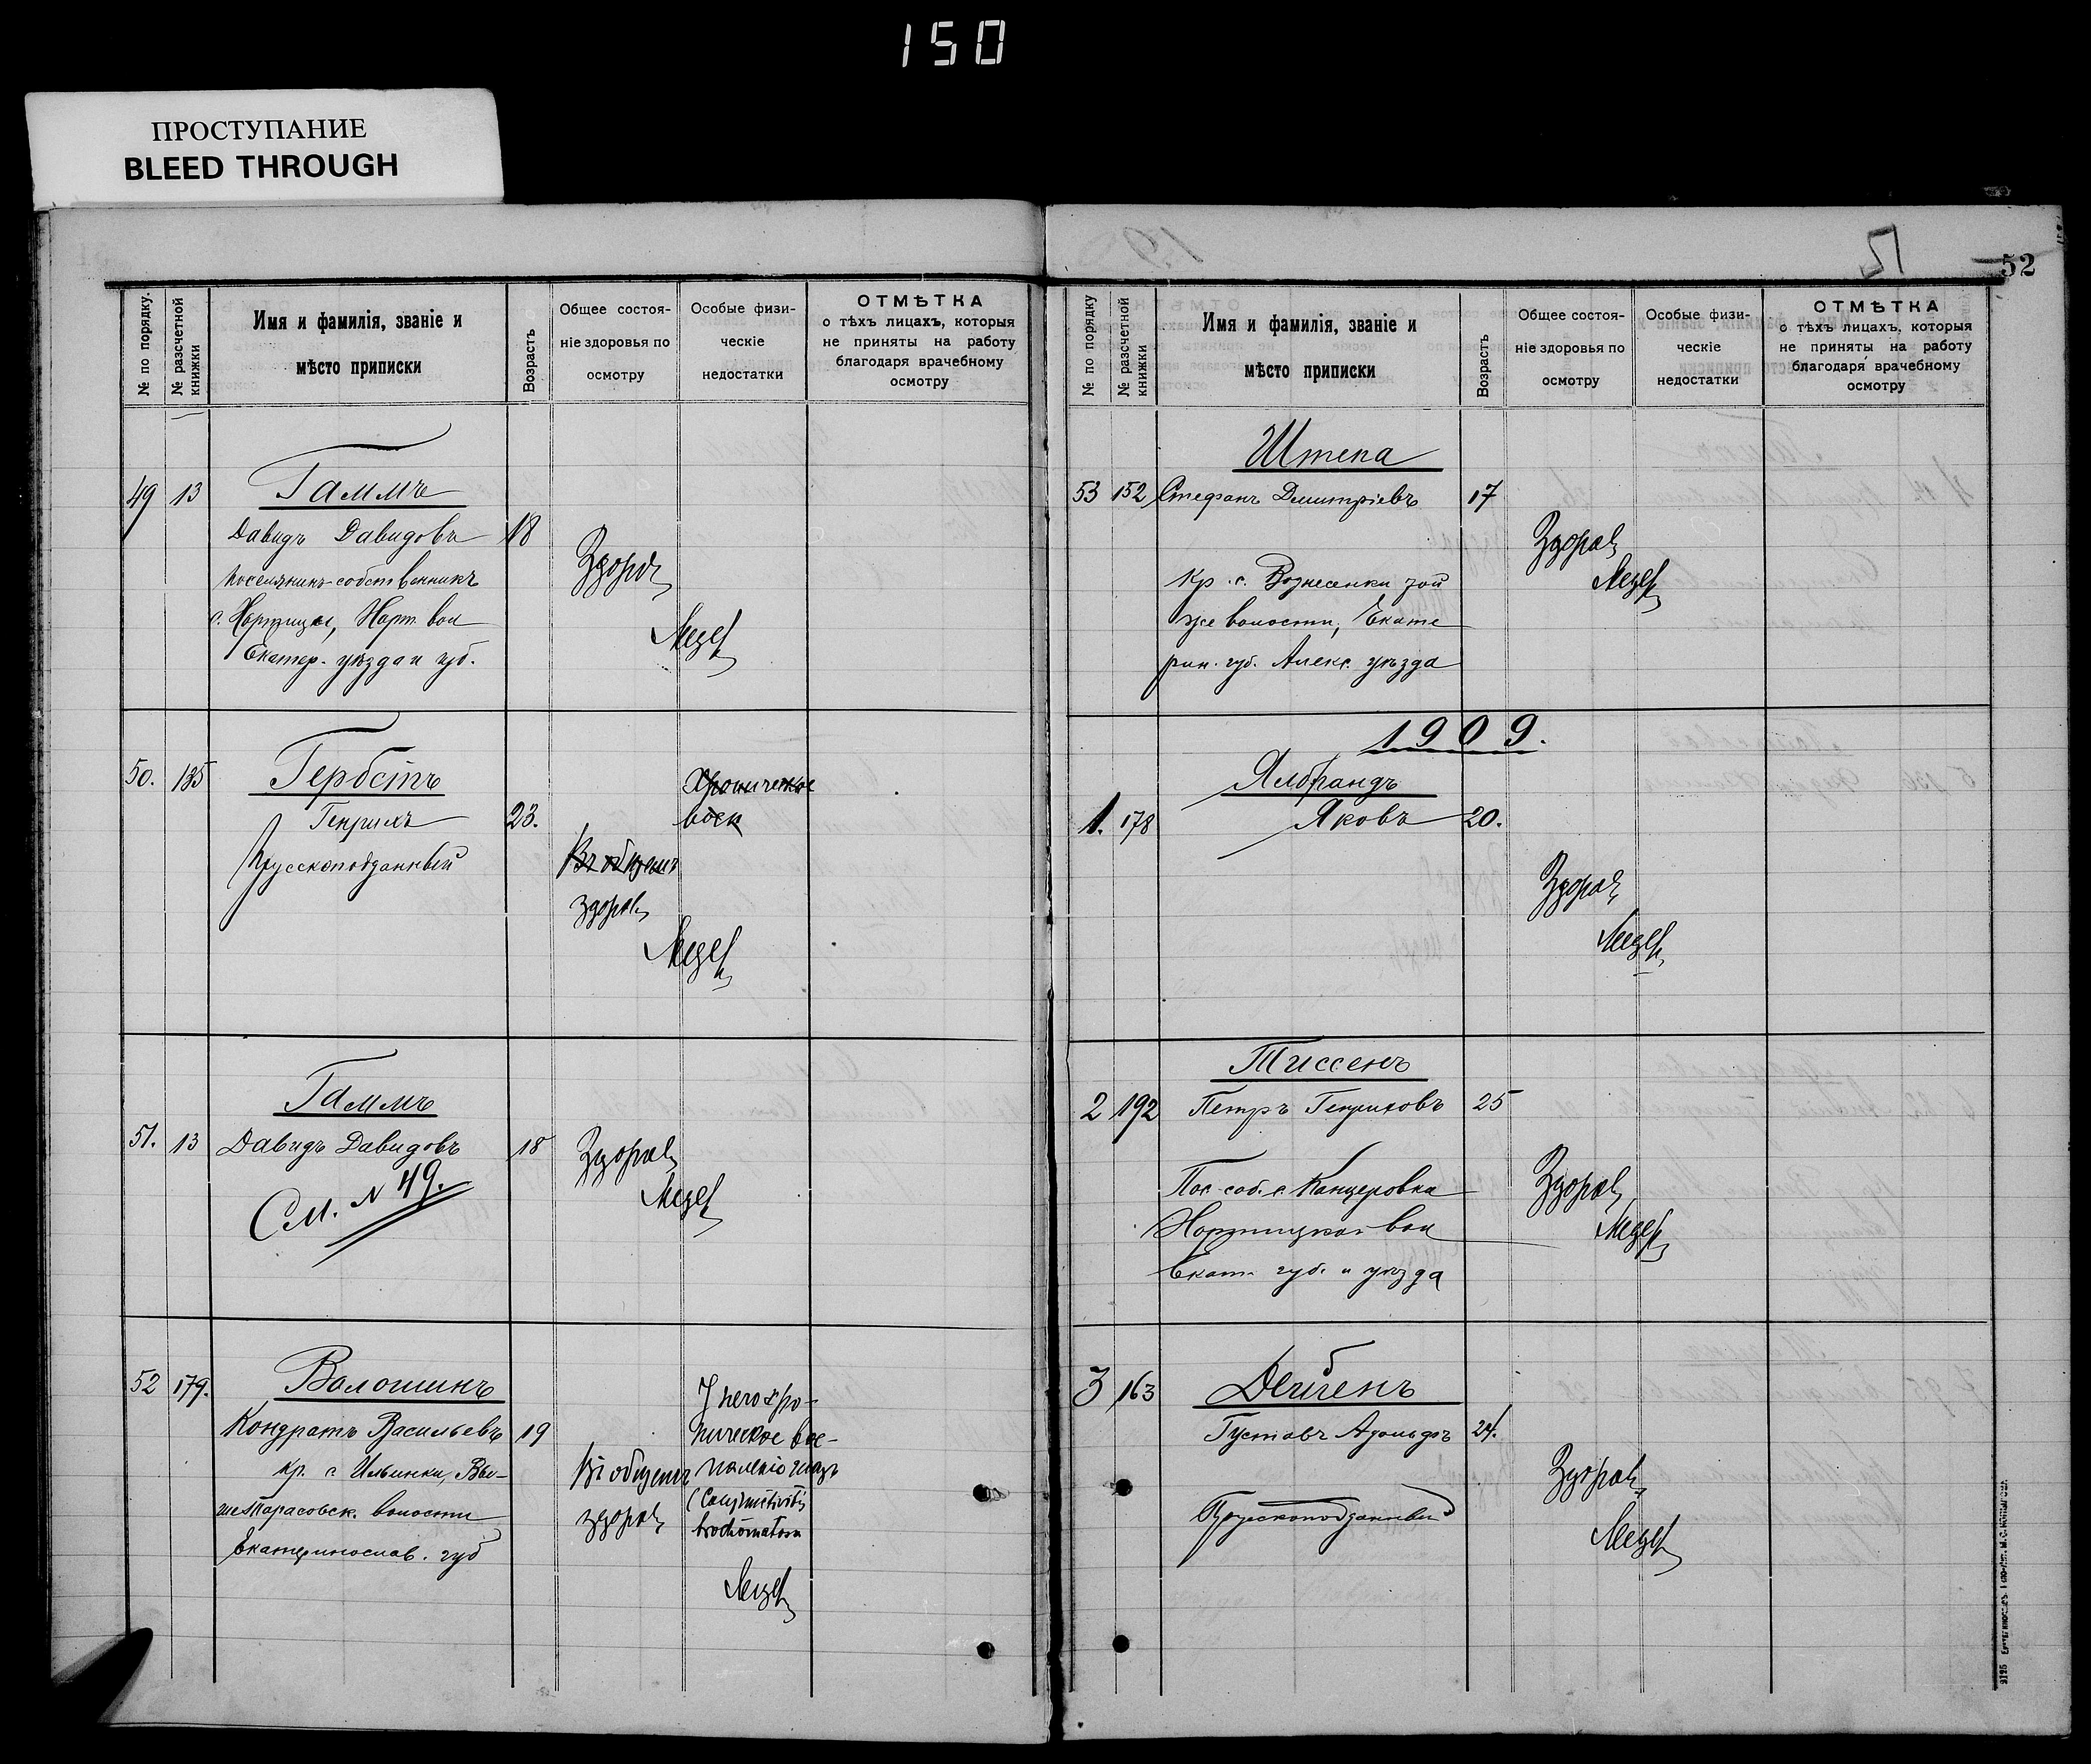 150
ПРОСТУПАНИЕ
BLEED THROUGH
52
№ по порядку.
№ разсчетной книжки
Имя и фамилія, званіе и
мѣсто приписки
Возрастъ
Общее состоя-
ніе здоровья по
осмотру
Особые физи-
ческіе
недостатки
ОТМѢТКА
о тѣхъ лицахъ, которыя
не приняты на работу
благодаря врачебному
осмотру
49 13 Гаммъ
Давидъ Давидовъ 18
поселянинъ-собственникъ
Здоровъ
с. Хортицы, Хорт. вол
Екатер. уѣзда и губ.
50. 135 Гербстъ
Хроническое
Генрихъ 23.
восп
Прусскоподданный
Въ общемъ
здоровъ
51. 13 Гаммъ
Давидъ Давидовъ 18
Здоровъ
См. № 49.
52 179. Волошинъ
У него хро-
Кондратъ Васильевъ 19
ническое вос-
кр. с. Ильинки, Вы-
Въ общемъ
паленіе глазъ
шетарасовск. волости
здоровъ
(Conjunctivitis
trachomatosa
Екатеринослав. губ
№ по порядку
№ разсчетной книжки
Имя и фамилія, званіе и
мѣсто приписки
Возрастъ
Общее состоя-
ніе здоровья по
осмотру
Особые физи-
ческіе
недостатки
ОТМѢТКА
о тѣхъ лицахъ, которыя
не приняты на работу
благодаря врачебному
осмотру
Штепа
53 152 Стефанъ Дмитріевъ 17
Здоровъ
Кр. с. Вознесенки той
же волости, Екате
рин. губ. Алекс. уѣзда
1909.
Ялбрандъ
1. 178 Яковъ 20.
Здоровъ
Тиссенъ
2 192 Петръ Генриховъ 25
Пос. соб. с. Канцеровка
Здоровъ
Хортицкой вол
Екат. губ. и уѣзда
3 163
Густавъ Адольфъ 24.
Здоровъ
Прусскоподданный